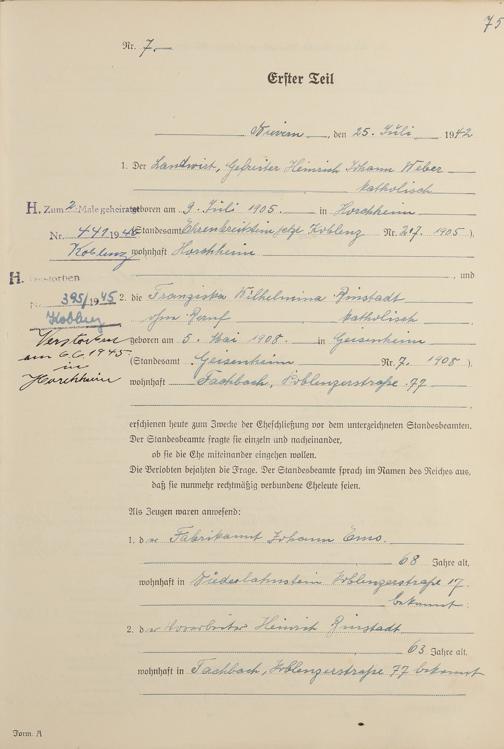 75
Nr. 7.
Erster Teil
Nievern, den 25. Juli 1942
1. Der Landwirt, Gefreiter Heinrich Johann Weber
katholisch
H. Zum 2. Male geheiratet
geboren am 9. Juli 1905 in Horchheim
Nr. 441 1946
(Standesamt Ehrenbreitstein jetzt Koblenz Nr. 217 1905).
Koblenz
wohnhaft Horchheim
, und
H. Gestorben
Nr. 395/1945
2. die Franziska Wilhelmina Rinstadt
Koblenz
ohne Beruf katholisch
Verstorben
geboren am 5. Mai 1908 in Geisenheim
am 6.6.1945
(Standesamt Geisenheim Nr. 7. 1908).
in
Horchheim
wohnhaft Fachbach, Koblenzerstraße 77
erschienen heute zum Zwecke der Eheschließung vor dem unterzeichneten Standesbeamten.
Der Standesbeamte fragte sie einzeln und nacheinander,
ob sie die Ehe miteinander eingehen wollen.
Die Verlobten bejahten die Frage. Der Standesbeamte sprach im Namen des Reiches aus,
daß sie nunmehr rechtmäßig verbundene Eheleute seien.
Als Zeugen waren anwesend:
1. der Johann
68 Jahre alt,
wohnhaft in Niederlahnstein Koblenzerstraße 17.
bekannt.
2. der Vorarbeiter Heinrich Rinstadt
63 Jahre alt,
wohnhaft in Fachbach, Koblenzerstraße 77 bekannt
Form. A